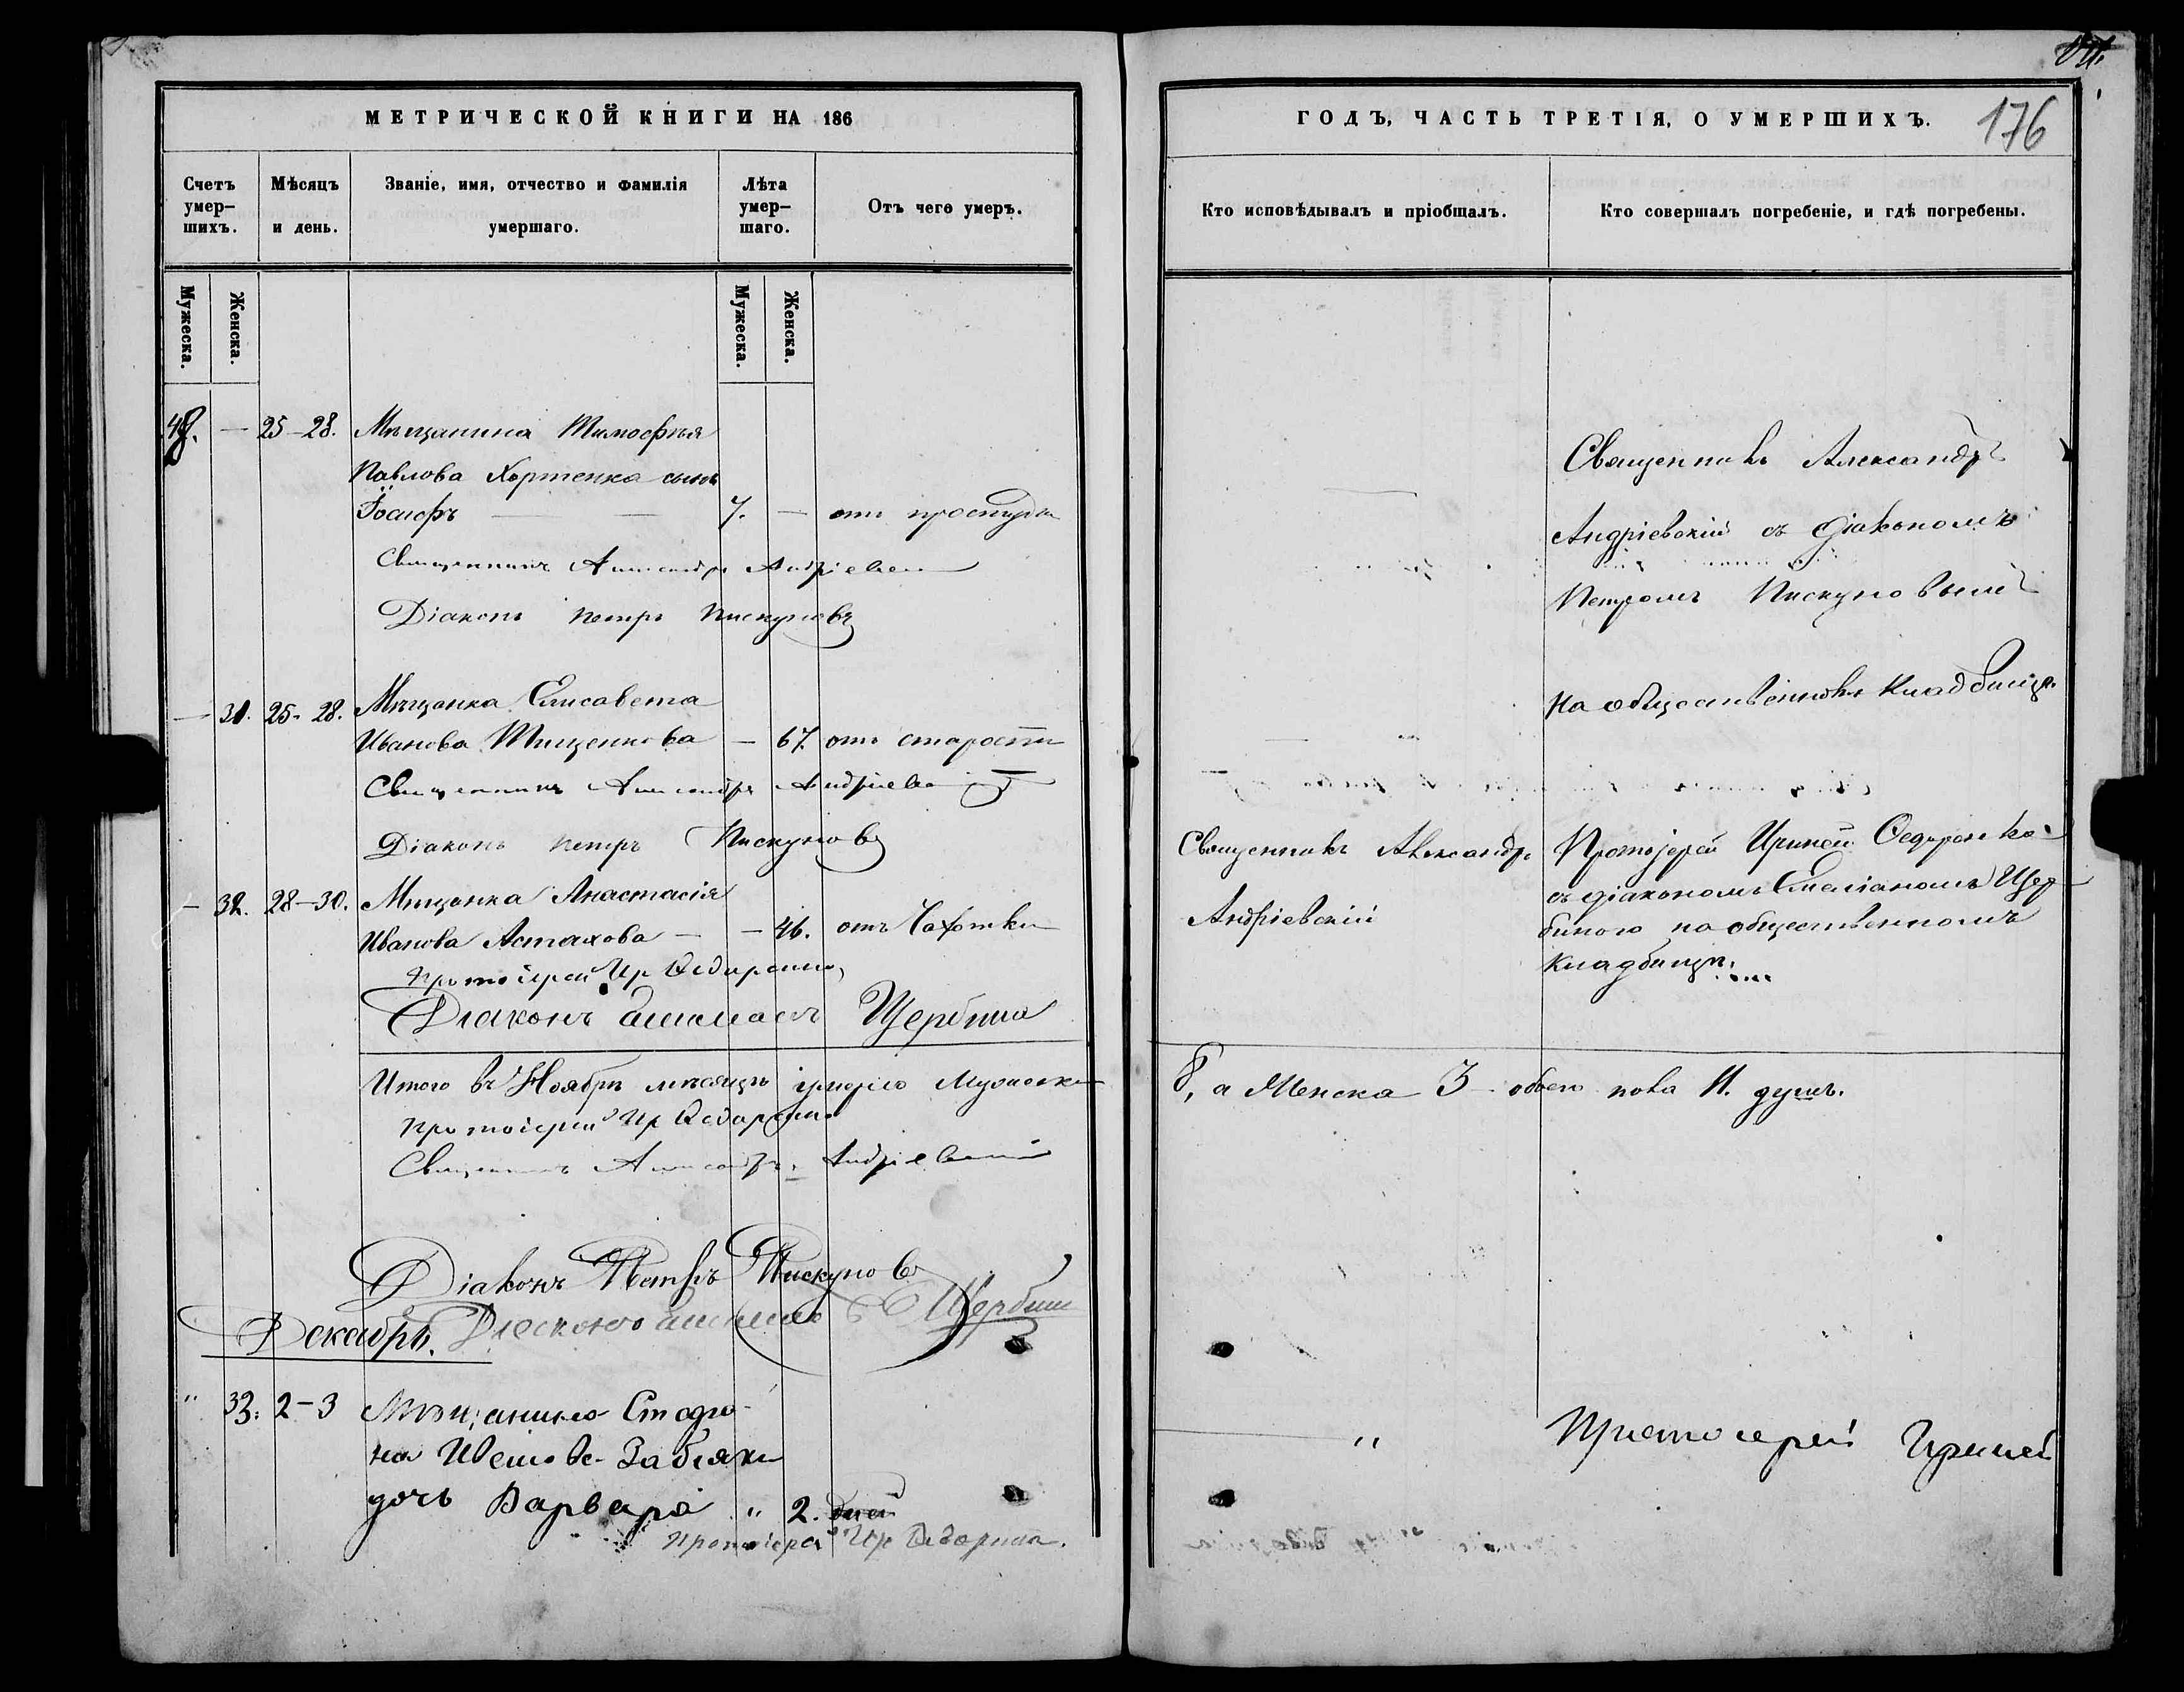 МЕТРИЧЕСКОЙ КНИГИ НА 186
Счетъ умер-шихъ.
Мѣсяцъ и день.
Званіе, имя, отчество и фамилія умершаго.
Лѣта умер-шаго.
Отъ чего умеръ.
Мужеска.
Женска.
Мужеска.
Женска.
48. — 25-28. Мѣщанина Тимофѣя
Павлова Хортенка сынъ
Іосифъ — — 7. — отъ простуды
Священникъ Александръ Андріевскій
Діаконъ Петръ Пискуновъ
— 31. 25-28. Мѣщанка Елисавета
Иванова Тищенкова — 67. отъ старости
Священникъ Александръ Андріевскій
Діаконъ Петръ Пискуновъ
— 32. 28-30. Мѣщанка Анастасія
Иванова Астахова — — 46. отъ Чахотки
Протоіерей Ир Ѳедоренко
Діаконъ Щербина
Итого въ Ноябрѣ мѣсяцѣ умерло Мужеска
Протоіерей Ир Ѳедоренко
Священникъ Александръ Андріевскій
Діаконъ Петръ Пискуновъ
Діаконъ Щербина
Декабрь.
" 33. 2-3 Мѣщанина
Забіяки
дочь Варвара " 2. дней
Протоіерей Ир Ѳедоренко.
ГОДЪ, ЧАСТЬ ТРЕТІЯ, О УМЕРШИХЪ.
176
Кто исповѣдывалъ и пріобщалъ.
Кто совершалъ погребеніе, и гдѣ погребены.
Священникъ Александръ
Андріевскій съ діакономъ
Петромъ Пискуновымъ
на общественномъ кладбищѣ.
Священникъ Александръ
Андріевскій
Протоіерей Ириней Ѳедоренко
съ діакономъ Емеліаномъ Щер-
биною на общественномъ
кладбищѣ.
8, а Женска 3 обоего пола 11. душъ.
" Протоіерей Ириней